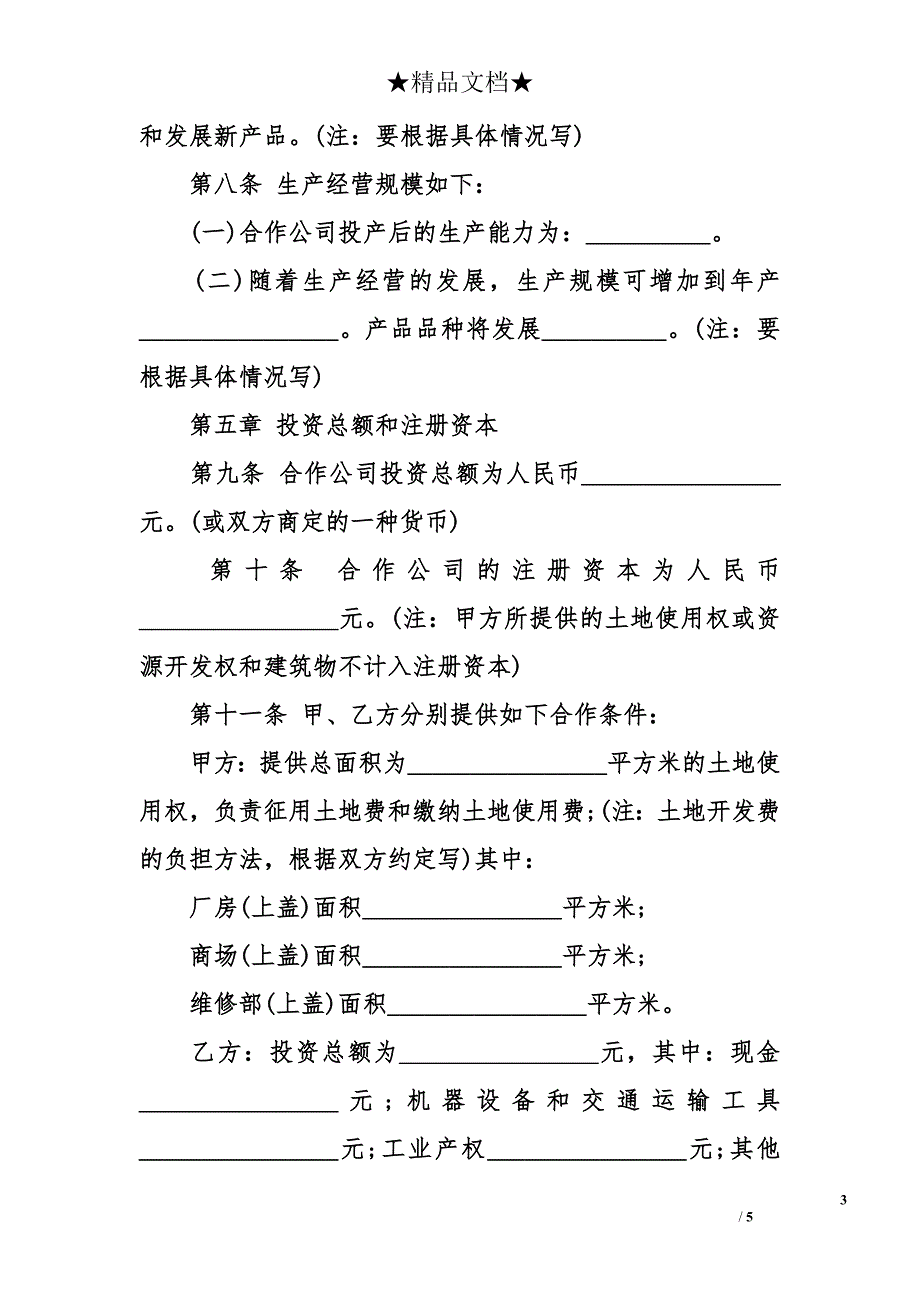 ★精品文档★
和发展新产品。(注：要根据具体情况写)
第八条 生产经营规模如下：
(一)合作公司投产后的生产能力为：__________。
(二)随着生产经营的发展，生产规模可增加到年产
________________。产品品种将发展__________。(注：要
根据具体情况写)
第五章 投资总额和注册资本
第九条 合作公司投资总额为人民币________________
元。(或双方商定的一种货币)
第十条 合作公司的注册资本为人民币
________________元。(注：甲方所提供的土地使用权或资
源开发权和建筑物不计入注册资本)
第十一条 甲、乙方分别提供如下合作条件：
甲方：提供总面积为________________平方米的土地使
用权，负责征用土地费和缴纳土地使用费;(注：土地开发费
的负担方法，根据双方约定写)其中：
厂房(上盖)面积________________平方米;
商场(上盖)面积________________平方米;
维修部(上盖)面积________________平方米。
乙方：投资总额为________________元，其中：现金
________________元;机器设备和交通运输工具
________________元;工业产权________________元;其他
3
/ 5